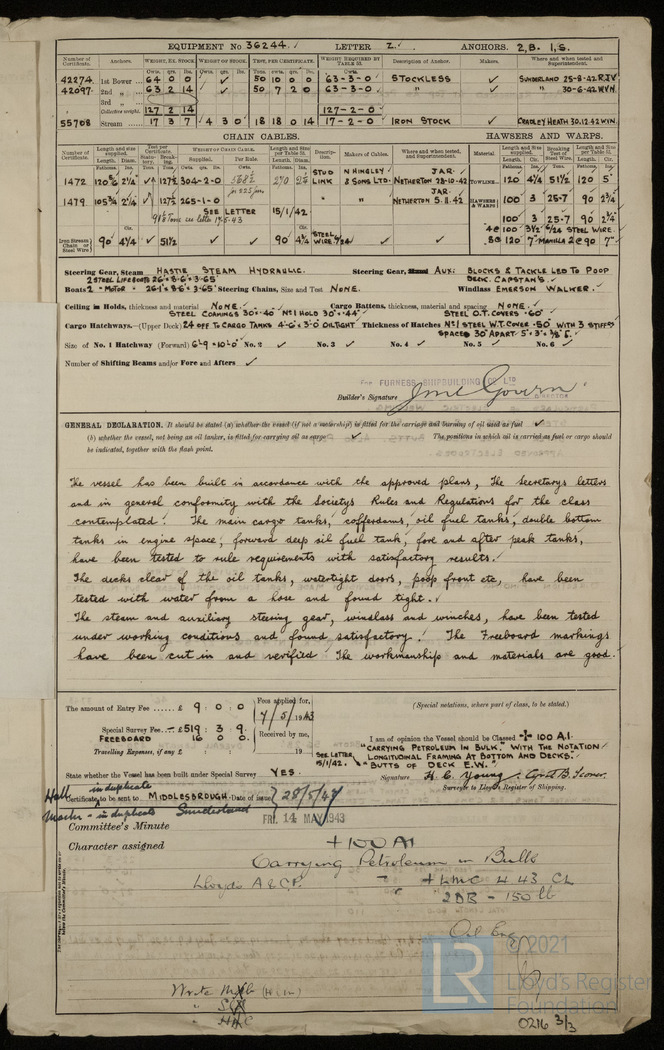 EQUIPMENT No 36244. LETTER Z. ANCHORS. 2,B. 1,S.
Number of Certificate. Anchors. WEIGHT, EX. STOCK. WEIGHT OF STOCK. TEST, PER CERTIFICATE. WEIGHT REQUIRED BY TABLE 53. Description of Anchor. Makers. Where and when tested and Superintendent.
Cwts. qrs. lbs. Cwts. qrs. lbs. Tons. cwts. qrs. lbs. Cwts.
42274. 1st Bower 64 0 0 ✓ 50 10 0 0 63-3-0 STOCKLESS SUNDERLAND 25-8-42. R.J.V.
42097. 2nd „ 63 2 14 50 7 2 0 63-3-0 " " 30-6-42. W.V.N.
3rd „
Collective weight. 127 2 14 127-2-0
55708 Stream 17 3 7 4 3 0 18 18 0 14 17-2-0 IRON STOCK CRADLEY HEATH 30.12.42 W.I.N.
CHAIN CABLES. HAWSERS AND WARPS.
Number of Certificate. Length and size supplied. Test per Certificate. WEIGHT OF CHAIN CABLE. Length and size per Table 53. Description. Makers of Cables. Where and when tested, and Superintendent. Material Length and size supplied. Breaking Test of Steel Wire. Length and size per Table 53.
Fathoms. Diam. Statutory. Breaking. Supplied. Per Rule. Fathoms. Diam. Length. Cir. Length. Cir.
1472 120 2¼" ✓ 127½ 304-2-0 568½ 270 2¼ STUD LINK N HINGLEY & SONS LTD. J.A.R. NETHERTON 28-10-42 TOWLINE 120 4¼ 51½ 120 5"
1479 105¾ 2¼" 127½ 265-1-0 for 225 fms " " J.A.R. NETHERTON 5.11.42 HAWSERS & WARPS 100 3 25-7 90 2¾"
SEE LETTER 15/1/42 100 3 25-7 90 2¾"
4@ 100 3½" 6/24 STEEL WIRE.
Iron Stream Chain or Steel Wire 90 4¼ ✓ 51½ ✓ ✓ 90 4¼ STEEL WIRE 6/24 ✓ ✓ 8@ 120 7" MANILLA 2@ 90 7"
Steering Gear, Steam HASTIE STEAM HYDRAULIC. Steering Gear, Hand AUX: BLOCKS & TACKLE LED TO POOP DECK CAPSTANS.
2 STEEL LIFEBOATS 26'×8·6'×3·65'
Boats 2 "MOTOR" 26·1×8·6×3·65' Steering Chains, Size and Test NONE. Windlass EMERSON WALKER.
Ceiling in Holds, thickness and material NONE. Cargo Battens, thickness, material and spacing NONE.
STEEL COAMINGS 30"×·40" No1 HOLD 30"×·44" STEEL O.T. COVERS ·60"
Cargo Hatchways.—(Upper Deck) 24 OFF TO CARGO TANKS 4'-6"×3'-0" OILTIGHT Thickness of Hatches No1 STEEL W.T. COVER ·50" WITH 3 STIFFRS
SPACED 30" APART 5"×3"×3/8" L.
Size of No. 1 Hatchway (Forward) 6'-9"×10'-0" No. 2 ✓ No. 3 ✓ No. 4 ✓ No. 5 ✓ No. 6 ✓
Number of Shifting Beams and/or Fore and Afters ✓
FOR FURNESS SHIPBUILDING CO LTD
Builder's Signature DIRECTOR
GENERAL DECLARATION. It should be stated (a) whether the vessel (if not a motorship) is fitted for the carriage and burning of oil used as fuel ✓
(b) whether the vessel, not being an oil tanker, is fitted for carrying oil as cargo ✓ The positions in which oil is carried as fuel or cargo should
be indicated, together with the flash point.
The vessel has been built in accordance with the approved plans, The Secretarys letters
and in general conformity with the Societys Rules and Regulations for the class
contemplated. The main cargo tanks, cofferdams, oil fuel tanks, double bottom
tanks in engine space, forward deep oil fuel tank, fore and after peak tanks,
have been tested to rule requirements with satisfactory results.
The decks clear of the oil tanks, watertight doors, poop front etc, have been
tested with water from a hose and found tight.
The steam and auxiliary steering gear, windlass and winches, have been tested
under working conditions and found satisfactory. The Freeboard markings
have been cut in and verified. The workmanship and materials are good.
The amount of Entry Fee £ 9 : 0 : 0 Fees applied for, (Special notations, where part of class, to be stated.)
7/5/1943
Special Survey Fee £519 : 3 : 9. Received by me,
FREEBOARD 16 0 0.
Travelling Expenses, if any £ : : 19
SEE LETTER 15/1/42.
I am of opinion the Vessel should be Classed +100 A.1.
"CARRYING PETROLEUM IN BULK." WITH THE NOTATION
"LONGITUDINAL FRAMING AT BOTTOM AND DECKS."
"BUTTS OF DECK E.W."
State whether the Vessel has been built under Special Survey YES.
Signature H. C. Young
Surveyor to Lloyd's Register of Shipping.
Hull in duplicate
Certificate to be sent to MIDDLESBROUGH Date of issue 28/5/43
Machy - in duplicate Sunderland
FRI. 14 MAY 1943
Committee's Minute
Character assigned +100 A1
Carrying Petroleum in Bulk
Lloyds A & C.P. + LMC 4.43 CL
2DB - 150 lb
Oil Eng
Write Mbb (H.i.m)
LR
© 2021
Lloyd's Register
Foundation
0216 3/3